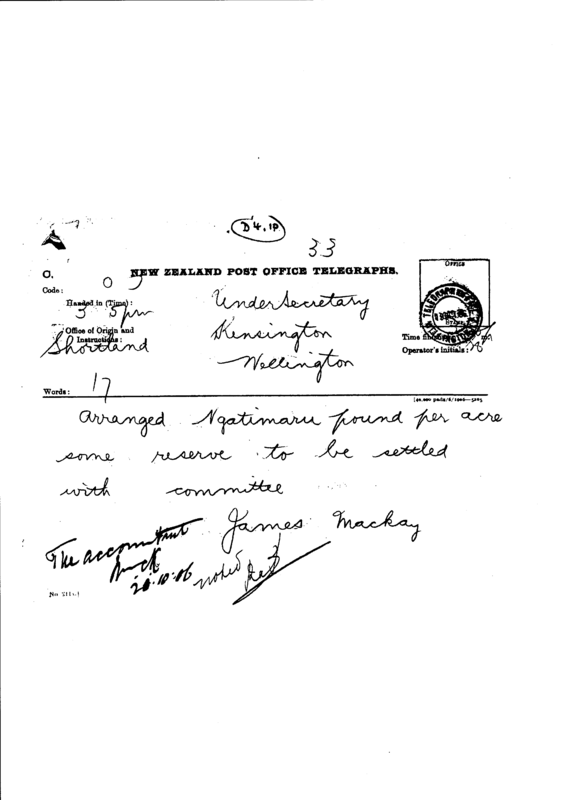 D'4.1P
33
O.
NEW ZEALAND POST OFFICE TELEGRAPHS.
Code:
Handed in (Time):
3 5 pm
Office of Origin and
Instructions:
Shortland
UnderSecretary
Kensington
Wellington
Office
TELEGRAPH OFFICE
WELLINGTON
Time
Operator's Initials:
Words: 17
arranged Ngatimaru pound per acre
some reserve to be settled
with committee
James Mackay
The accountant
20.10.06
noted